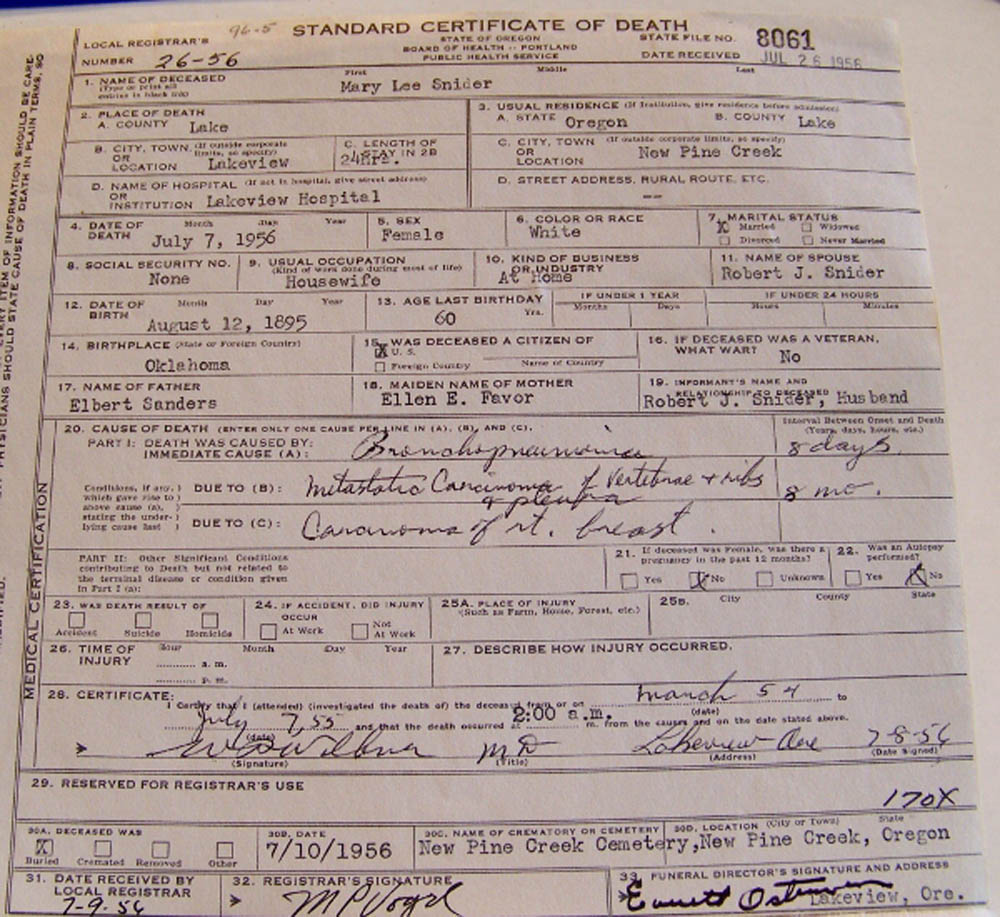 96-5 STANDARD CERTIFICATE OF DEATH
LOCAL REGISTRAR'S NUMBER 26-56
STATE OF OREGON
BOARD OF HEALTH -- PORTLAND
PUBLIC HEALTH SERVICE
STATE FILE NO. 8061
DATE RECEIVED JUL 26 1956
1. NAME OF DECEASED First Middle Last
(Type or print all entries in black ink) Mary Lee Snider
2. PLACE OF DEATH
A. COUNTY Lake
3. USUAL RESIDENCE (If Institution, give residence before admission)
A. STATE Oregon B. COUNTY Lake
B. CITY, TOWN, (If outside corporate limits, so specify) OR LOCATION Lakeview
C. LENGTH OF STAY IN 2B 24hrs.
C. CITY, TOWN, (If outside corporate limits, so specify) OR LOCATION New Pine Creek
D. NAME OF HOSPITAL (If not in hospital, give street address) OR INSTITUTION Lakeview Hospital
D. STREET ADDRESS, RURAL ROUTE, ETC. --
4. DATE OF DEATH Month Day Year July 7, 1956
5. SEX Female
6. COLOR OR RACE White
7. MARITAL STATUS
X Married Widowed
Divorced Never Married
8. SOCIAL SECURITY NO. None
9. USUAL OCCUPATION (Kind of work done during most of life) Housewife
10. KIND OF BUSINESS OR INDUSTRY At Home
11. NAME OF SPOUSE Robert J. Snider
12. DATE OF BIRTH Month Day Year August 12, 1895
13. AGE LAST BIRTHDAY 60 Yrs.
IF UNDER 1 YEAR Months Days
IF UNDER 24 HOURS Hours Minutes
14. BIRTHPLACE (State or Foreign Country) Oklahoma
15. WAS DECEASED A CITIZEN OF
X U. S.
Foreign Country Name of Country
16. IF DECEASED WAS A VETERAN, WHAT WAR? No
17. NAME OF FATHER Elbert Sanders
18. MAIDEN NAME OF MOTHER Ellen E. Favor
19. INFORMANT'S NAME AND RELATIONSHIP TO DECEASED Robert J. Snider, Husband
20. CAUSE OF DEATH (ENTER ONLY ONE CAUSE PER LINE IN (A), (B), AND (C).
Interval Between Onset and Death (Years, days, hours, etc.)
PART I: DEATH WAS CAUSED BY:
IMMEDIATE CAUSE (A): Bronchopneumonia 8 days
Conditions, if any, which gave rise to above cause (a), stating the underlying cause last
DUE TO (B): Metastatic Carcinoma of Vertebrae + ribs + pleura 8 mo.
DUE TO (C): Carcinoma of rt. breast.
PART II: Other Significant Conditions contributing to Death but not related to the terminal disease or condition given in Part I (a):
21. If deceased was Female, was there a pregnancy in the past 12 months?
Yes X No Unknown
22. Was an Autopsy performed?
Yes X No
23. WAS DEATH RESULT OF
Accident Suicide Homicide
24. IF ACCIDENT, DID INJURY OCCUR
At Work Not At Work
25A. PLACE OF INJURY (Such as Farm, Home, Forest, etc.)
25B. City County State
26. TIME OF INJURY Hour Month Day Year
a. m.
p. m.
27. DESCRIBE HOW INJURY OCCURRED.
28. CERTIFICATE:
I Certify that I (attended) (investigated the death of) the deceased from or on March 54 to
(date)
July 7, 55 and that the death occurred at 2:00 a.m. m. from the causes and on the date stated above.
(date)
MD Lakeview Ore 7-8-56
(Signature) (Title) (Address) (Date Signed)
29. RESERVED FOR REGISTRAR'S USE
170X
30A. DECEASED WAS
X Buried Cremated Removed Other
30B. DATE 7/10/1956
30C. NAME OF CREMATORY OR CEMETERY New Pine Creek Cemetery,
30D. LOCATION (City or Town) State New Pine Creek, Oregon
31. DATE RECEIVED BY LOCAL REGISTRAR 7-9-56
32. REGISTRAR'S SIGNATURE
33. FUNERAL DIRECTOR'S SIGNATURE AND ADDRESS
Everett Lakeview, Ore.
MEDICAL CERTIFICATION
ITEM OF INFORMATION SHOULD BE CARE-
PHYSICIANS SHOULD STATE CAUSE OF DEATH IN PLAIN TERMS, SO